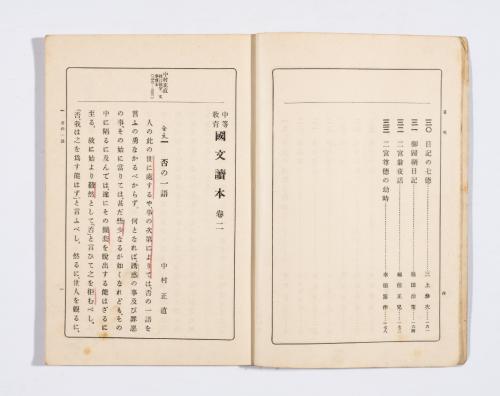 目次
三〇 日記の七徳 三上參次
三一 御歸朝日記
三二 二宮翁夜話 福住正兄
三三 二宮尊德の幼時 幸田露伴
中村正直
中等敎育 國文讀本 卷二
一 否の一語
中村正直
人の此の世に處するや、事の次第によりては、否の一語を
言ふの勇なかるべからず。何となれば、誘惑の事及び罪惡
の事、その始に當りては甚だ些少なるが如くなれども、その
中に陷るに及んでは、遂にその顚を脫出する能はざるに
至る。故に始より毅然として、「否」と言ひて之を拒むべし。
「否、我は之を爲す能はず」と言ふべし。然るに、世人を觀るに、
否の一語
一